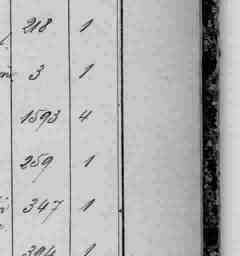 218 1
3 1
1593 4
259 1
347 1
394 1